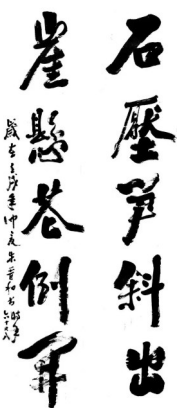 石壓笋斜出
崖懸花倒開
歲在壬戌年仲夏朱普和书時年
六十又八